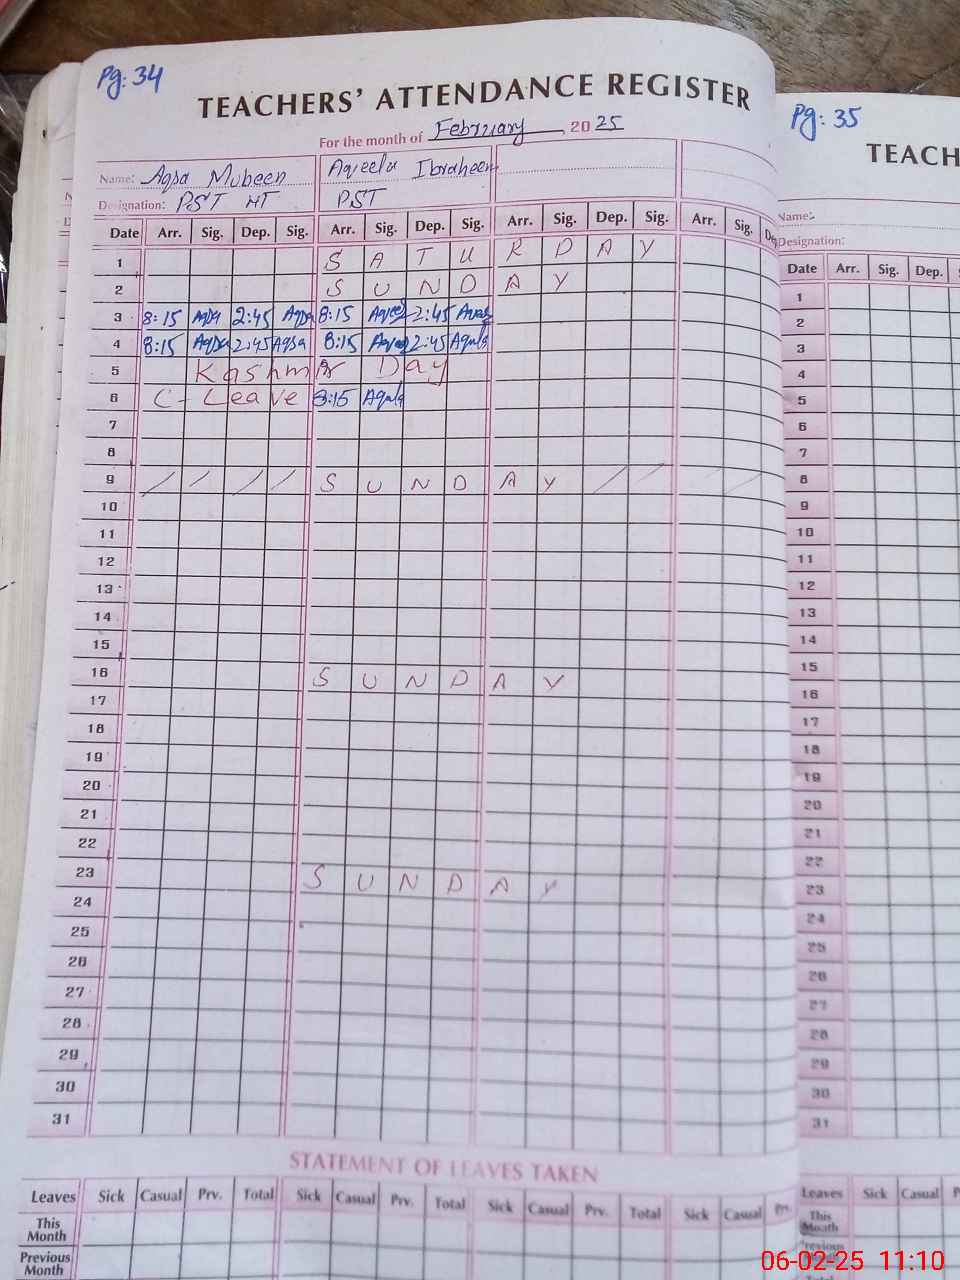 Pg: 34
TEACHERS' ATTENDANCE REGISTER
For the month of February, 2025
Name: Aqsa Mubeen Aqeela Ibraheem
Designation: PST HT PST
Date Arr. Sig. Dep. Sig. Arr. Sig. Dep. Sig. Arr. Sig. Dep. Sig. Arr. Sig. Dep
1 S A T U R D A Y
2 S U N D A Y
3 8:15 Aqsa 2:45 Aqsa 8:15 2:45
4 8:15 Aqsa 2:45 Aqsa 8:15 2:45
5 Kashmir Day
6 C-Leave 8:15
7
8
9 / / / / S U N D A Y / / /
10
11
12
13
14
15
16 S U N D A Y
17
18
19
20
21
22
23 S U N D A Y
24
25
26
27
28
29
30
31
STATEMENT OF LEAVES TAKEN
Leaves Sick Casual Prv. Total Sick Casual Prv. Total Sick Casual Prv. Total Sick Casual Prv.
This
Month
Previous
Month
Pg: 35
TEACH
Name:
Designation:
Date Arr. Sig. Dep.
1
2
3
4
5
6
7
8
9
10
11
12
13
14
15
16
17
18
19
20
21
22
23
24
25
26
27
28
29
30
31
Leaves Sick Casual P
This
Month
Previous
Month
06-02-25 11:10